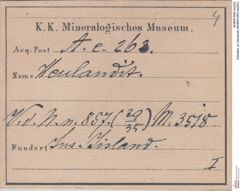 4
K. K. Mineralogisches Museum.
Acq.-Post A. e. 263.
Name Heulandit.
V. d. N. n. 857. (29/35) M. 3518
Fundort Ins. Island.
I